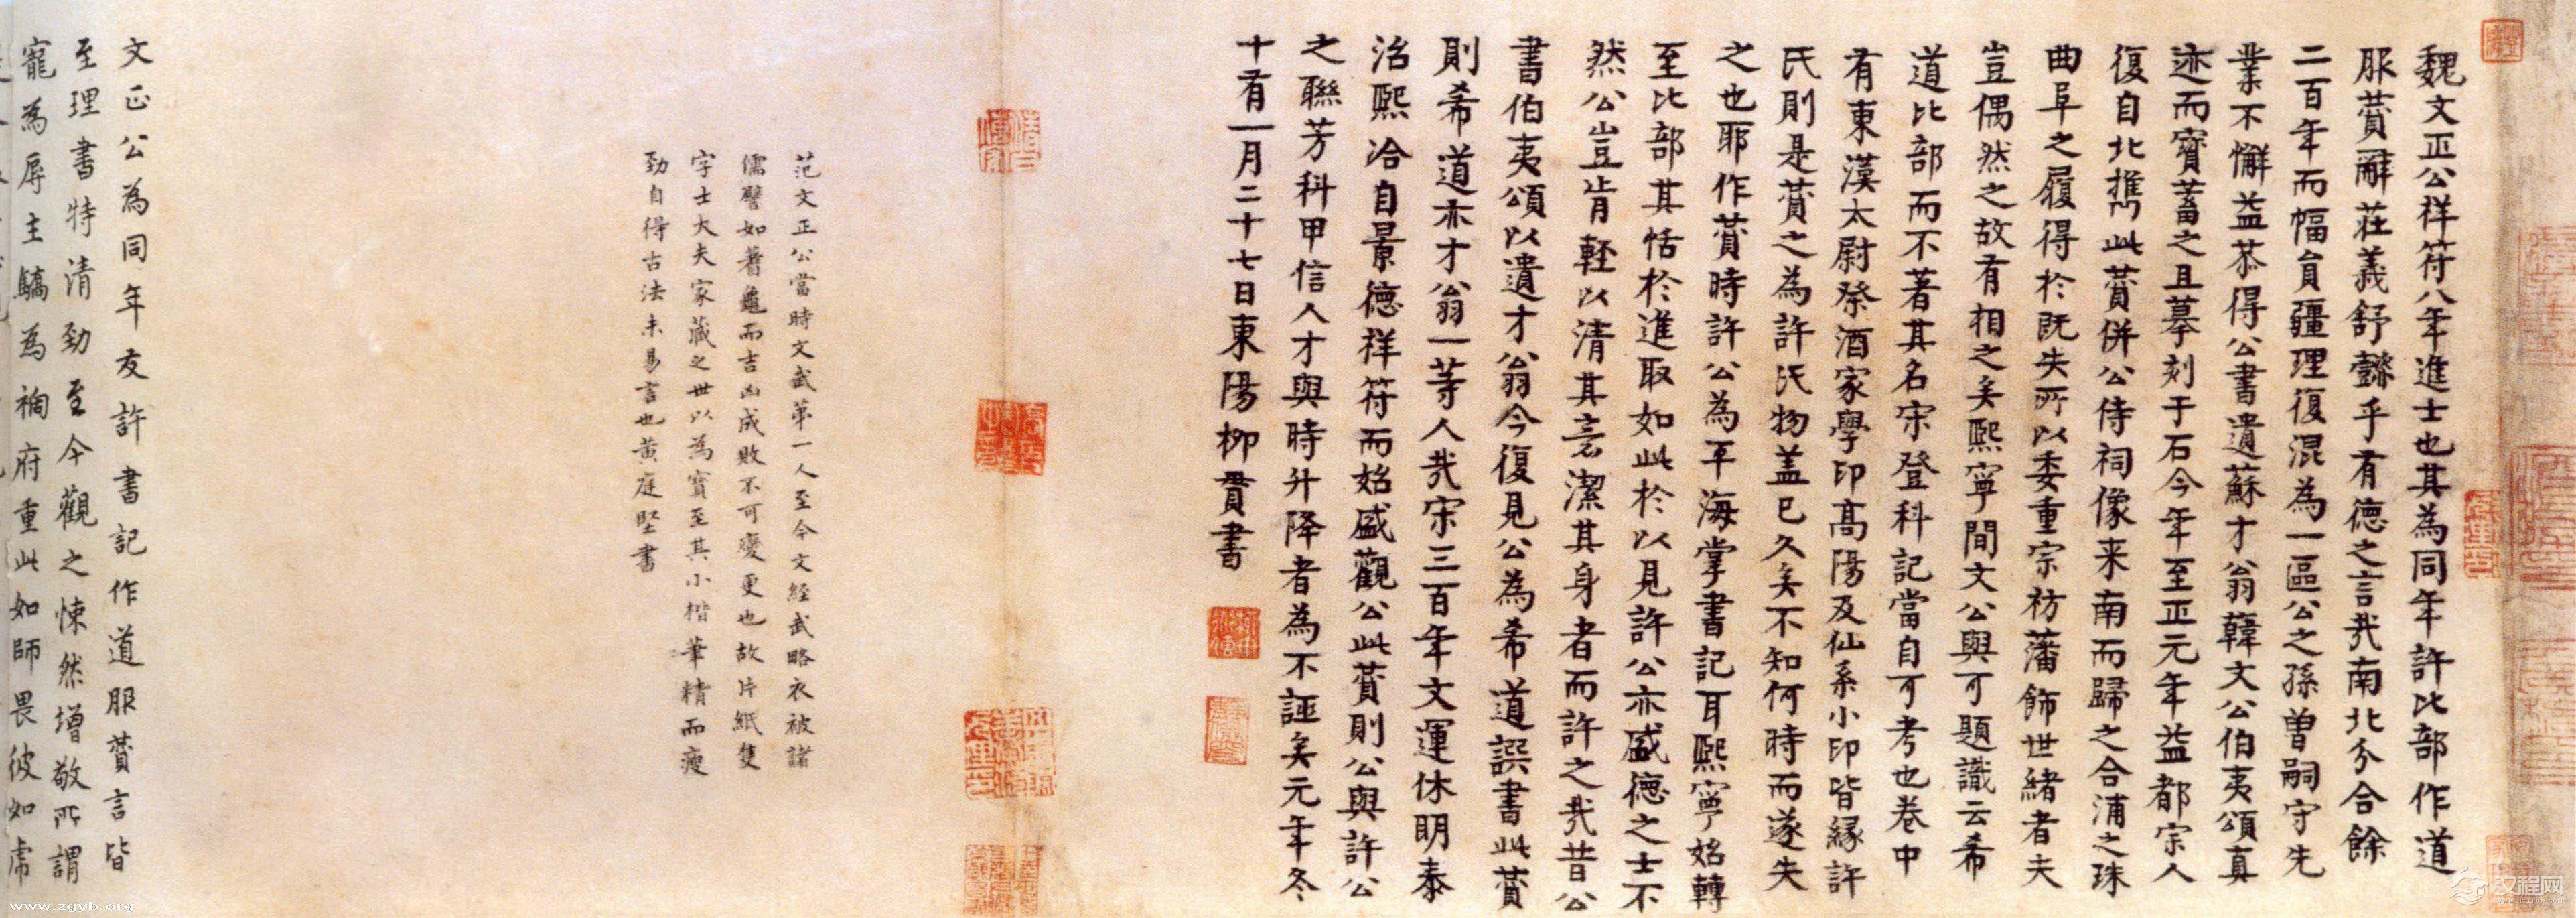 魏文正公祥符八年進士也其為同年許比部作道
服贊辭莊義舒懿乎有德之言哉南北分合餘
二百年而幅員疆理復混為一區公之孫曾嗣守先
業不懈益恭得公書遺蘇才翁韓文公伯夷頌真
迹而寳蓄之且摹刻于石今年至正元年益都宗人
復自北攜此贊併公侍祠像来南而歸之合浦之珠
曲阜之履得於既失所以委重宗祊藩飾世緒者夫
豈偶然之故有相之矣熙寧間文公與可題識云希
道比部而不著其名宋登科記當自可考也卷中
有東漢太尉祭酒家學印高陽及仙系小印皆緣許
氏則是贊之為許氏物盖已久矣不知何時而遂失
之也耶作贊時許公為平海掌書記耳熙寧始轉
至比部其恬於進取如此於以見許公亦盛德之士不
然公豈肯輕以清其意潔其身者而許之哉昔公
書伯夷頌以遺才翁今復見公為希道譔書此贊
則希道亦才翁一等人哉宋三百年文運休明泰
治熙洽自景德祥符而始盛觀公此贊則公與許公
之聯芳科甲信人才與時升降者為不誣矣元年冬
十有一月二十七日東陽柳貫書
范文正公當時文武第一人至今文經武略衣被諸
儒譬如蓍龜而吉凶成敗不可變更也故片紙隻
字士大夫家藏之世以為寳至其小楷筆精而瘦
勁自得古法未易言也黄庭堅書
文正公為同年友許書記作道服贊言皆
至理書特清勁至今觀之悚然增敬所謂
寵為辱主驕為禍府重此如師畏彼如虎
www.zgyb.org
汉程网